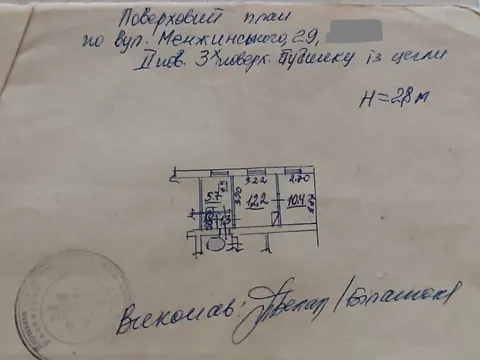 Поверховий план
по вул. Менжинського, 29,
II пов. 3х поверх. будинку із цегли
H = 2,8 м
3.22 2.70
5.7 3.90 12.2 10.4
Виконав: